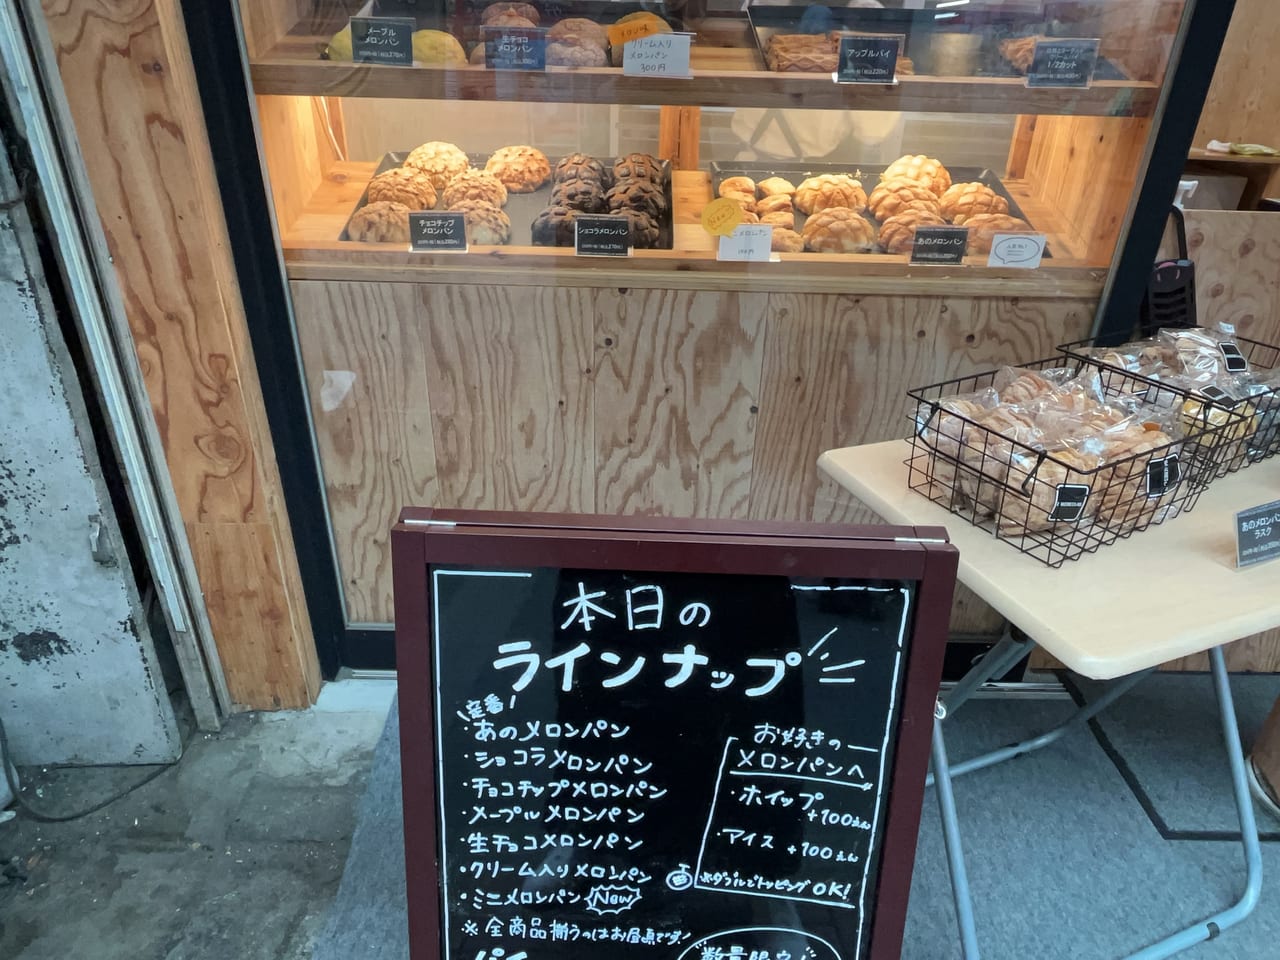 メープル
メロンパン
生チョコ
メロンパン
クリーム入り
メロンパン
300円
アップルパイ
1/2カット
チョコチップ
メロンパン
ショコラメロンパン
あのメロンパン
あのメロンパン
ラスク
本日の
ラインナップ
定番!
・あのメロンパン
・ショコラメロンパン
・チョコチップメロンパン
・メープルメロンパン
・生チョコメロンパン
・クリーム入りメロンパン
・ミニメロンパン New
※全商品揃うのはお昼点です!
パイ
お好きの
メロンパンへ
・ホイップ
+100えん
・アイス +100えん
※ダブルでトッピングOK!
数量限定!